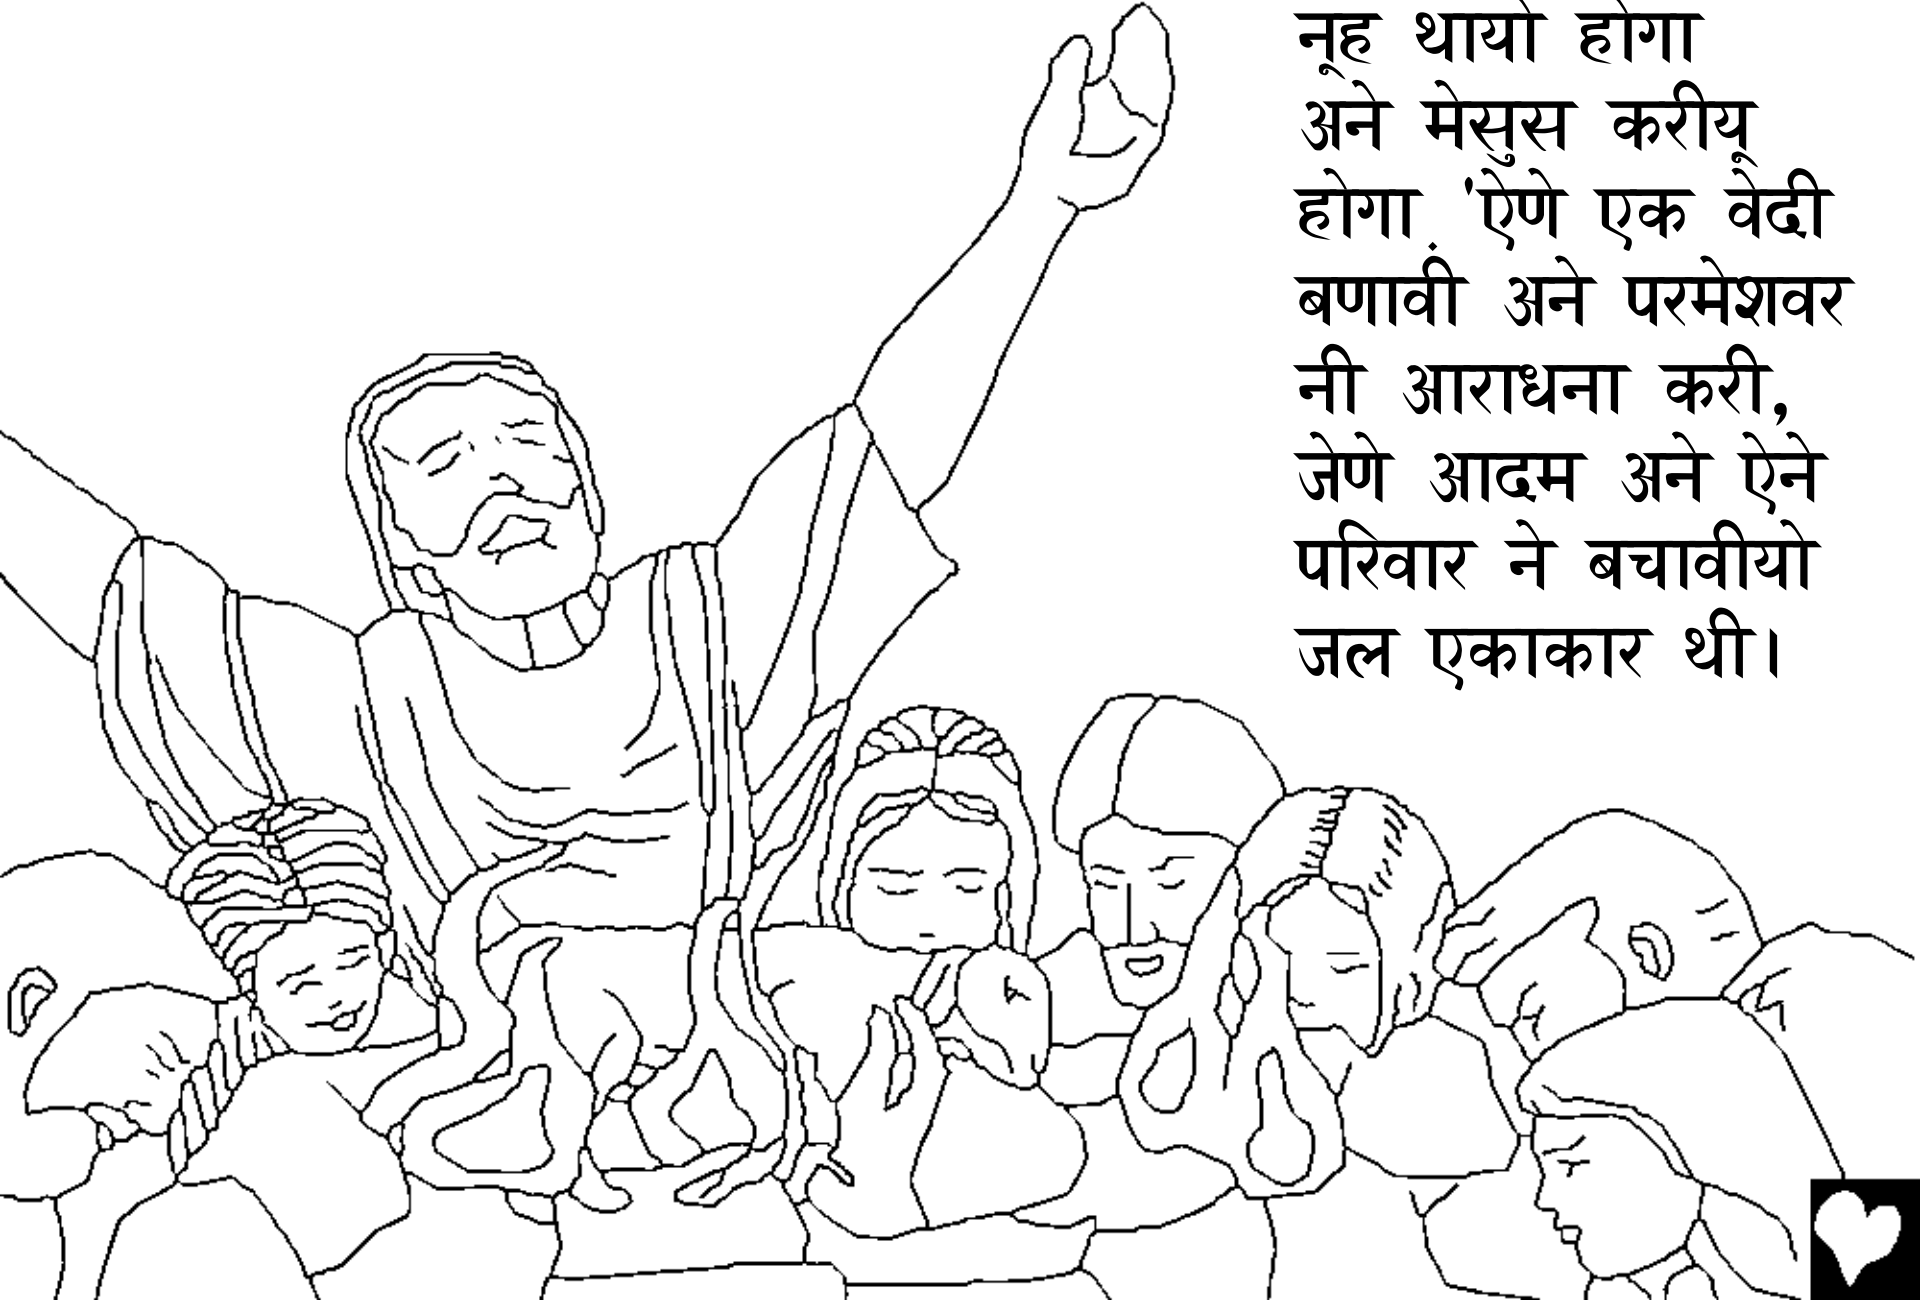 नूह थायो होगा
अने मेसुस करीयू
होगा. 'ऐणे एक वेदी
बणावी अने परमेशवर
नी आराधना करी,
जेणे आदम अने ऐने
परिवार ने बचावीयो
जल एकाकार थी।